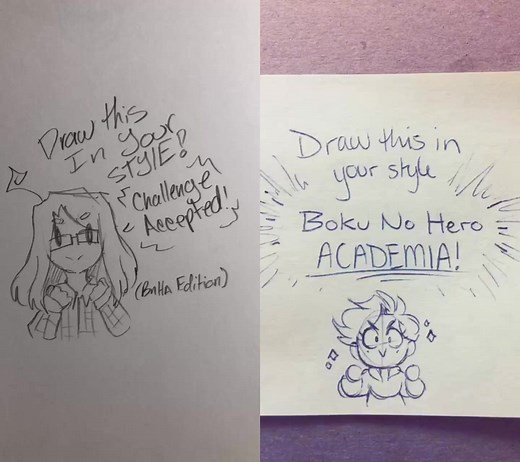 Draw this
In your
STYLE!
Challenge
Accepted!
(BnHa Edition)
Draw this in
your style
Boku No Hero
ACADEMIA!